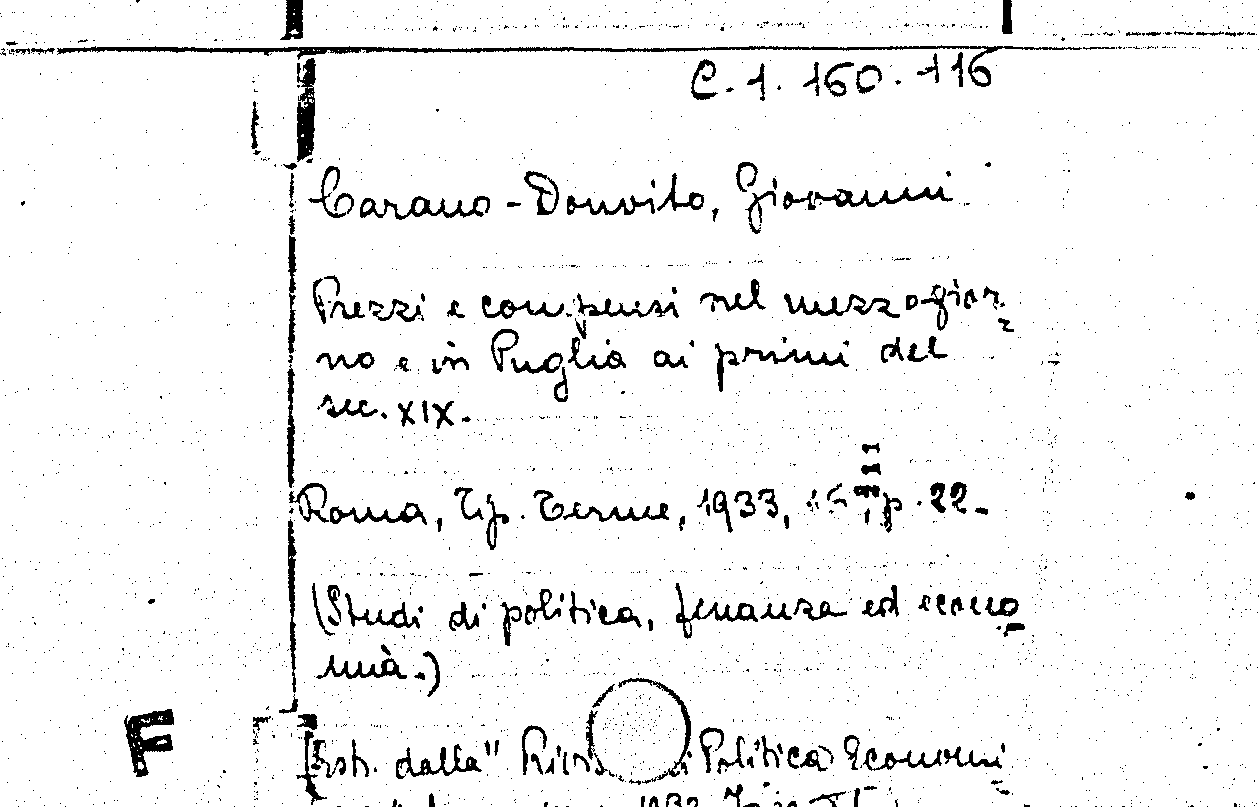 C.1.160.116
Carano-Donvito, Giovanni
Prezzi e compensi nel mezzogior=
no e in Puglia ai primi del
sec. XIX.
Roma, Tip. Terme, 1933, p. 22.
(Studi di politica, finanza ed econo
mia.)
F
(Estr. dalla "Politica Economi
1933